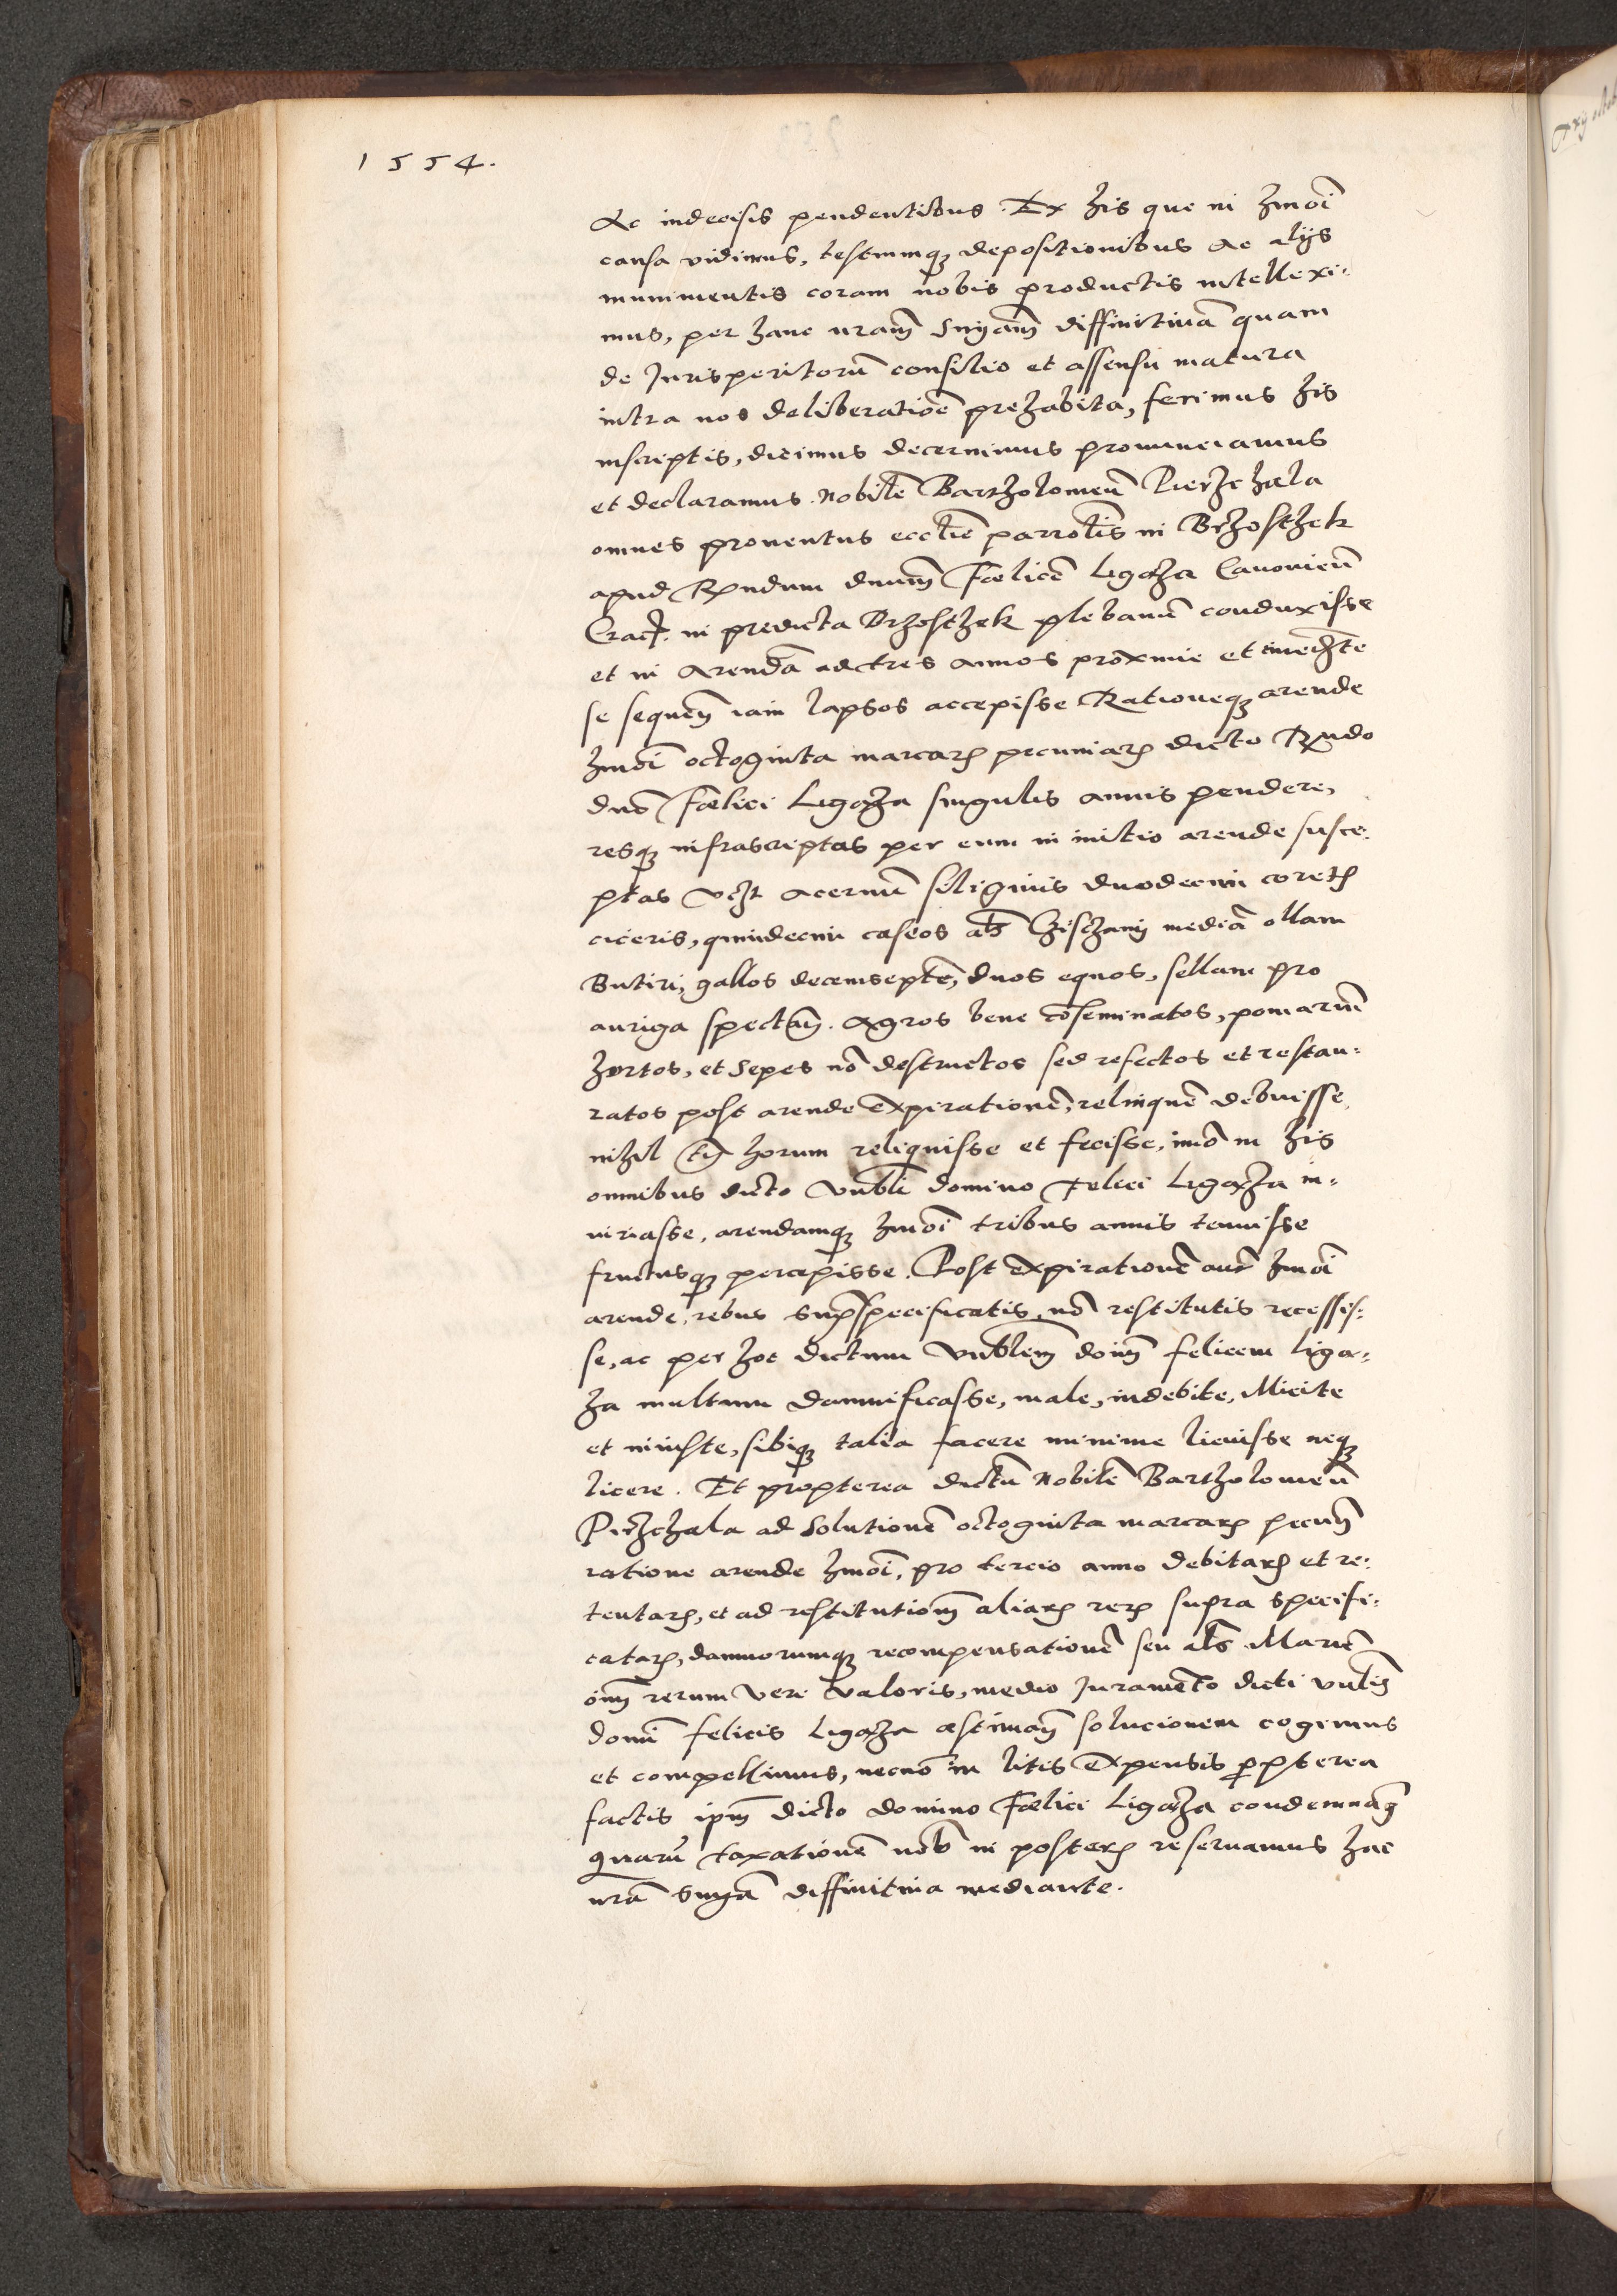 1554.
Ac indecisis pendentibus. Ex his que in hmoĩ
causa vidimus, testiumq; depositionibus ac alijs
munimentis coram nobis productis intellexi:
mus, per hanc nrãm snỹam diffinitiuã quam
de Jurisperitorũ consilio et assensu matura
intra nos deliberatiõe prehabita, ferimus his
inscriptis, dicimus decernimus pronunciamus
et declaramus. Nobilẽ Bartholomeũ Pierzchala
omnes prouentus eccliẽ parrolis in Brzostzek
apud Rndum dnum Fœlicẽ Ligęza Canonicũ
Crac̃. in predicta Brzostzek plebanũ conduxisse
et in arendã ad tres annos proxime et imediate
se sequeñ iam lapsos accepisse Rationeq; arende
hmoĩ octoginta marcarꝫ pecuniarꝫ dicto Rndo
dnõ Fœlici Ligęza singulis annis pendere,
resq; infrascriptas per eum in initio arende susce:
ptas vꝫt aceruũ siliginis duodecim coretꝫ
ciceris, quindecim caseos als̃ mediã ollam
Butiri, gallos decemseptẽ, duos equos, sellam pro
auriga spectañ. Agros bene cõseminatos, pomariũ
hortos, et sepes nõ destructos sed refectos et restau:
ratos post arende expirationẽ, relinquẽ debuisse
nihil tñ horum reliquisse et fecisse, imõ in his
omnibus dicto vnbli domino Felici Ligęza in:
iuriasse, arendamq; hmoĩ tribus annis tenuisse
fructusq; percepisse. Post expirationẽ aut̃ hmoĩ
arende, rebus supr̃specificatis, nõ restitutis recessis:
se, ac per hoc dictum vnblem doim̃ felicem Ligę:
za multum damnificasse, male, indebite, illicite
et iniuste, sibiq; talia facere minime licuisse neq;
licere. Et propterea dictũ Nobilẽ Bartholomeũ
Pierzchala ad solutionẽ octoginta marcarꝫ pecuñ
ratione arende hmoĩ, pro tercio anno debitarꝫ et re:
tentarꝫ, et ad restitutioñ aliarꝫ rerꝫ supra specifi:
catarꝫ, damnorumq; recompensationẽ seu als̃
oĩm rerum veri valoris, medio Juramẽto dicti vnblis
domĩ felicis Ligęza æstimañ solucionem cogimus
et compellimus, necnõ in litis expensis propterea
factis ipm̃ dicto domino Fœlici Ligęza condemnãꝰ
quarũ taxationẽ nob̃ in posterꝫ reseruamus hac
nrã snỹa diffinitiua mediante.